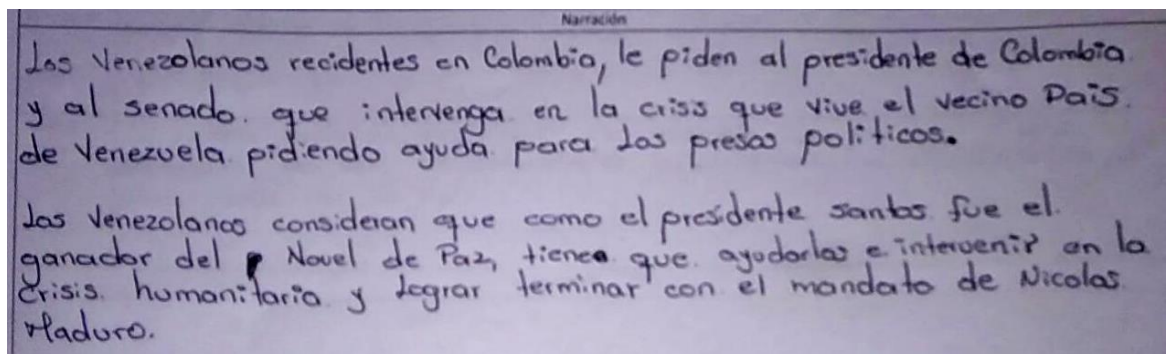 Narración
Los Venezolanos recidentes en Colombia, le piden al presidente de Colombia
y al senado. que intervenga en la criss que vive el vecino Pais.
de Venezuela pidiendo ayuda para los presos politicos.
Los Venezolanos consideran que como el presidente santos fue el.
ganador del Novel de Paz, tiene que ayudarlos e intervenir en la
Crisis humanitaria y lograr terminar con el mandato de Nicolas
Maduro.